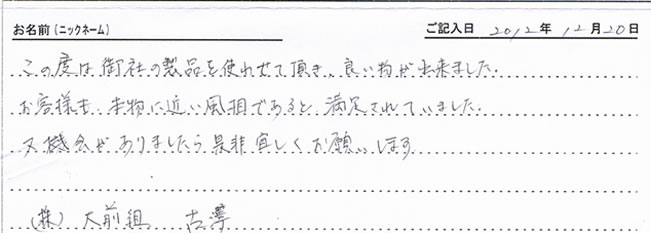 お名前（ニックネーム） ご記入日 2012年 12月20日
この度は御社の製品を使わせて頂き、良い物が出来ました.
お客様も、本物に近い風相であると、満足されていました.
又機会がありましたら是非宜しくお願いします
（株）大前組 古澤